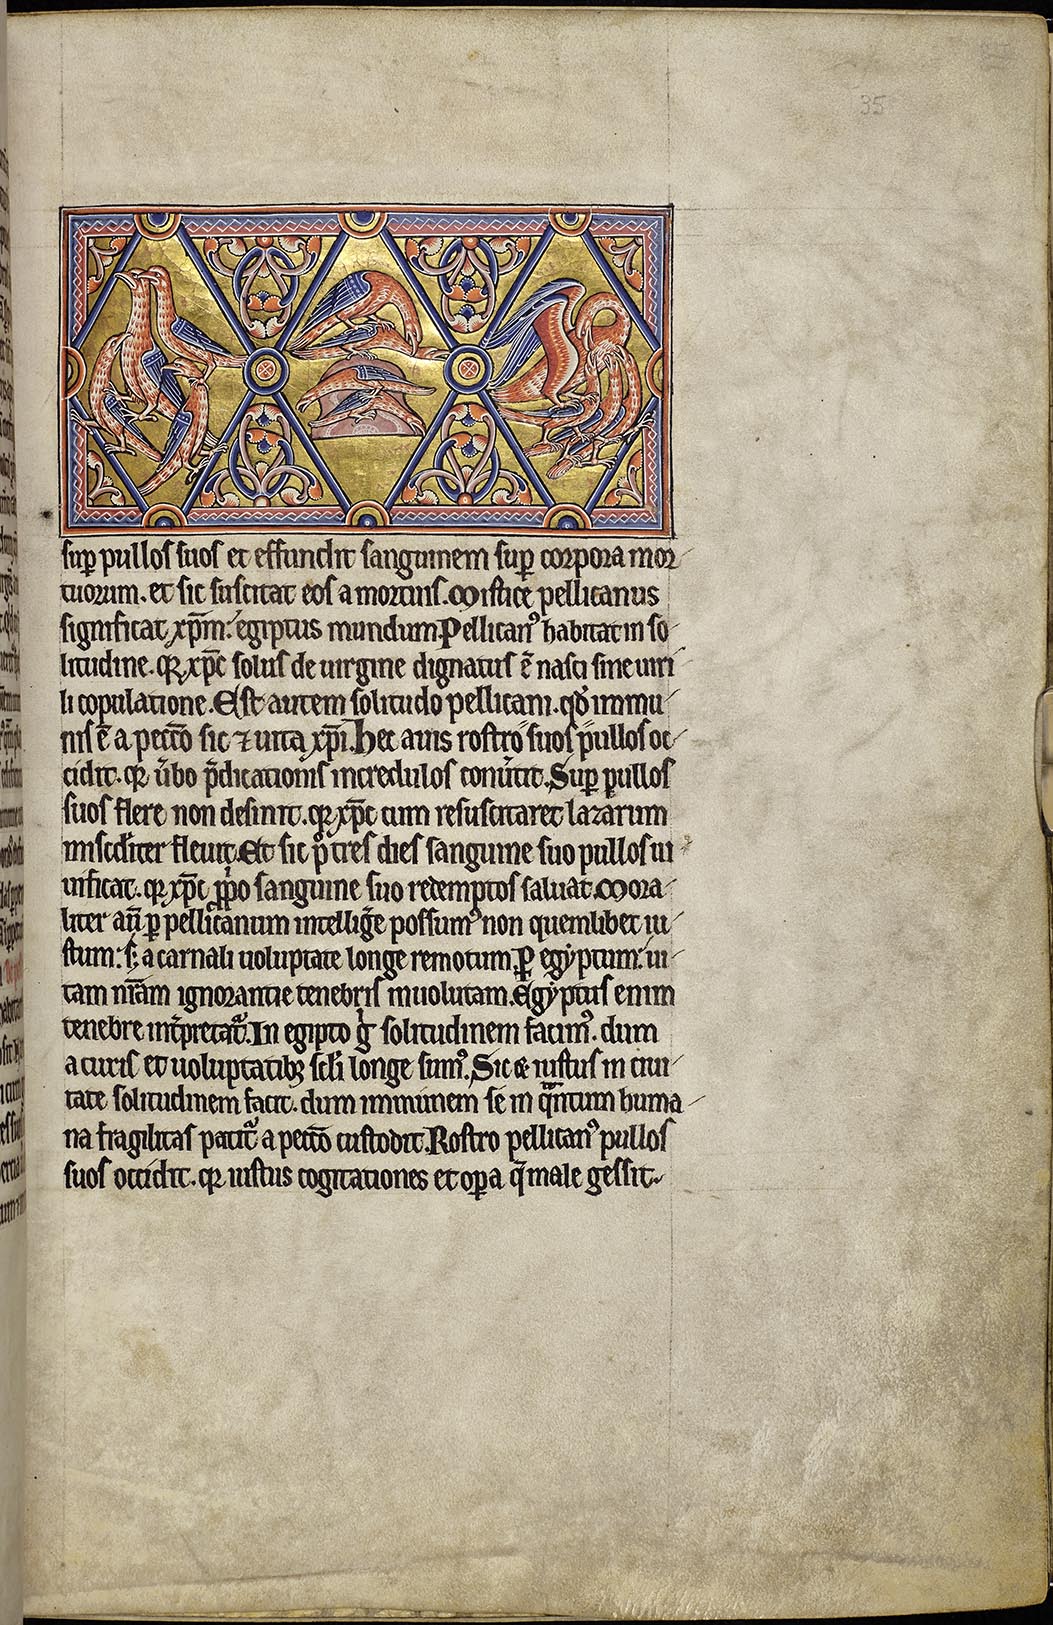 35
sup̱ pullos suos et effundit sanguinem sup̱ corpora mor
tuorum. et sic suscitat eos a mortuis. Mistice pellicanus
significat xp̄m. egiptus mundum. Pellicanꝰ habitat in so
litudine. qꝛ xp̄c solus de uirgine dignatus ē nasci sine uiri
li copulatione. Est autem solitudo pellicani. qđ immu
nis ē a peccō sic ⁊ uita xp̄i. Hec auis rostro suos pullos oc
cidit. qꝛ ūbo p̄dicationis incredulos conūtit. Sup̱ pullos
suos flere non desinit. qꝛ xp̄c cum resuscitaret lazarum
miscd̓iter fleuit. Et sic p̊ tres dies sanguine suo pullos ui
uificat. qꝛ xp̄c pp̱o sanguine suo redemptos saluat. Mora
liter aū ꝑ pellicanum intellig̓e possumꝰ non quemlibet iu
stum. s; a carnali uoluptate longe remotum. ꝑ egyptum. ui
tam nr̄am ignorantie tenebris inuolutam. Egyptus enim
tenebre int̓pretat᷑. In egipto g̊ solitudinem facimꝰ. dum
a curis et uoluptatibꝫ sc̄li longe sumꝰ. Sic & iustus in ciui
tate solitudinem facit. dum inmunem se in qᵃntum huma
na fragilitas patit᷑ a peccō custodit. Rostro pellicanꝰ pullos
suos occidit. qꝛ iustus cogitationes et oꝑa q̄ male gessit.